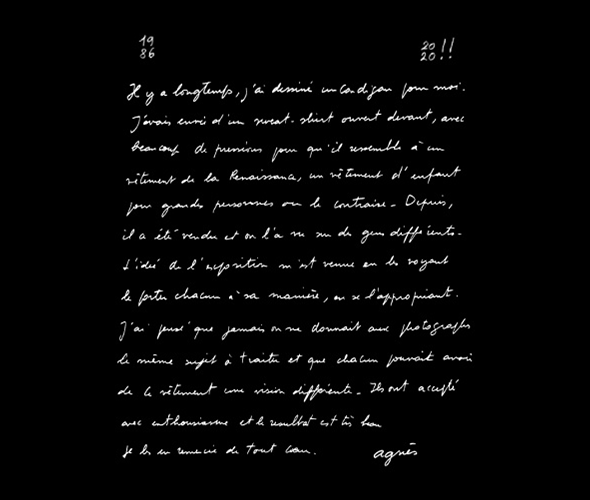 19 20!!
86 20
Il y a longtemps, j'ai dessiné un cardigan pour moi.
J'avais envie d'un sweat-shirt ouvert devant, avec
beaucoup de pressions pour qu'il ressemble à un
vêtement de la Renaissance, un vêtement d'enfant
pour grandes personnes ou le contraire - Depuis,
il a été vendu et on l'a vu sur des gens différents -
L'idée de l'exposition m'est venue en les voyant
le porter chacun à sa manière, en se l'appropriant.
J'ai pensé que jamais on ne donnait aux photographes
le même sujet à traiter et que chacun pouvait avoir
de ce vêtement une vision différente - Ils ont accepté
avec enthousiasme et le résultat est très beau
Je les en remercie de tout cœur. agnès